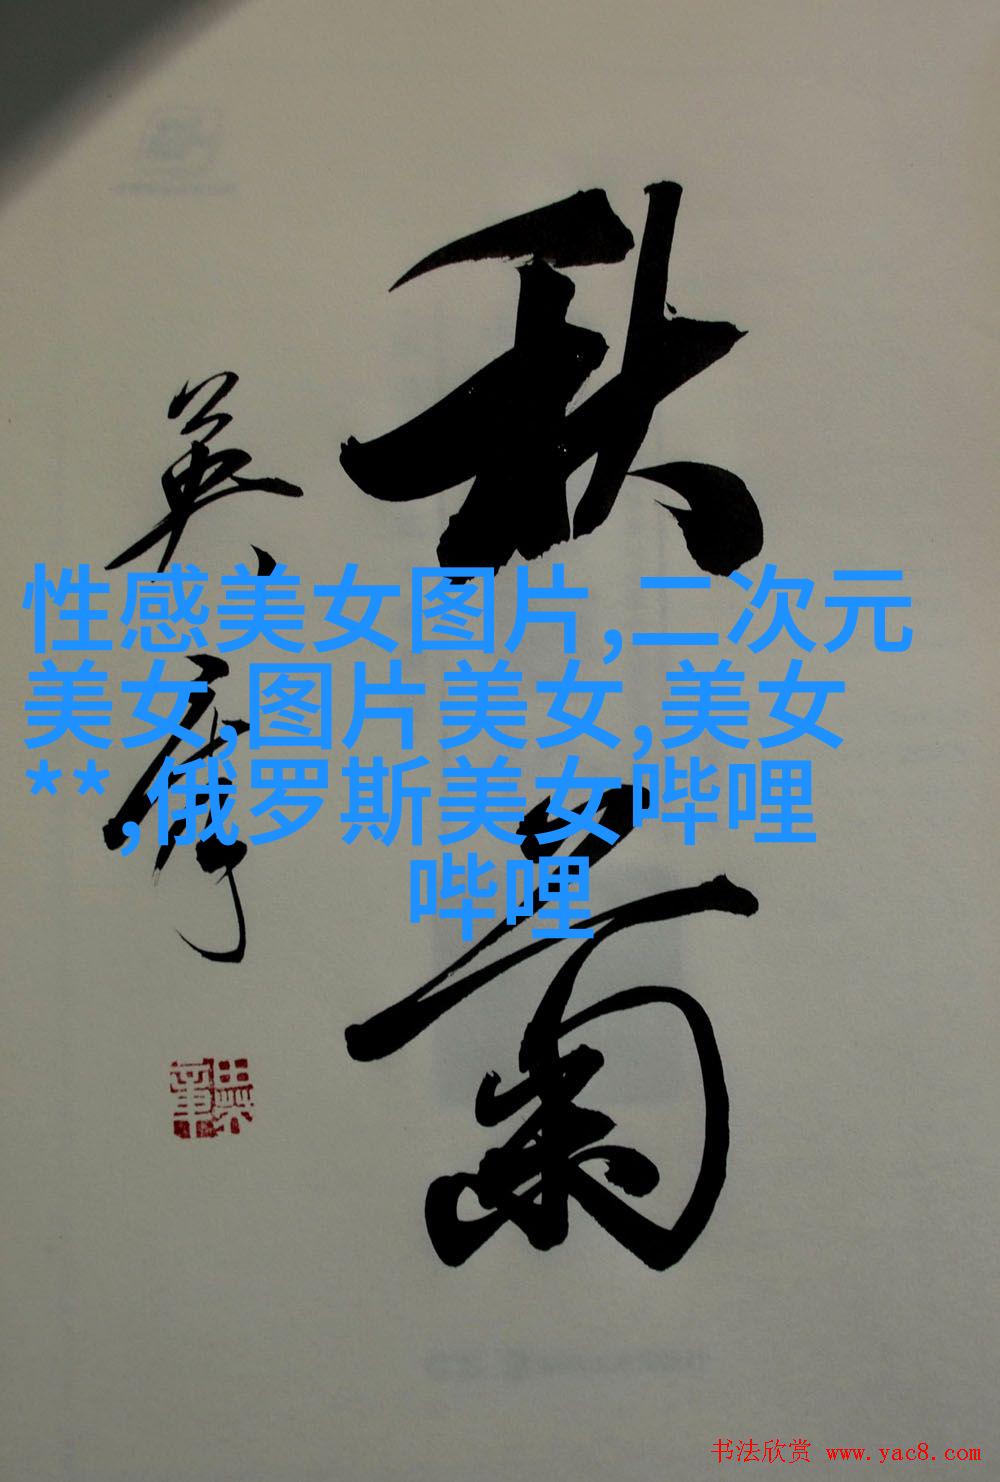 秋菊
英群
性感美女图片,二次元
美女,图片美女,美女
**,俄罗斯美女哔哩
哔哩
书法欣赏 www.yac8.com